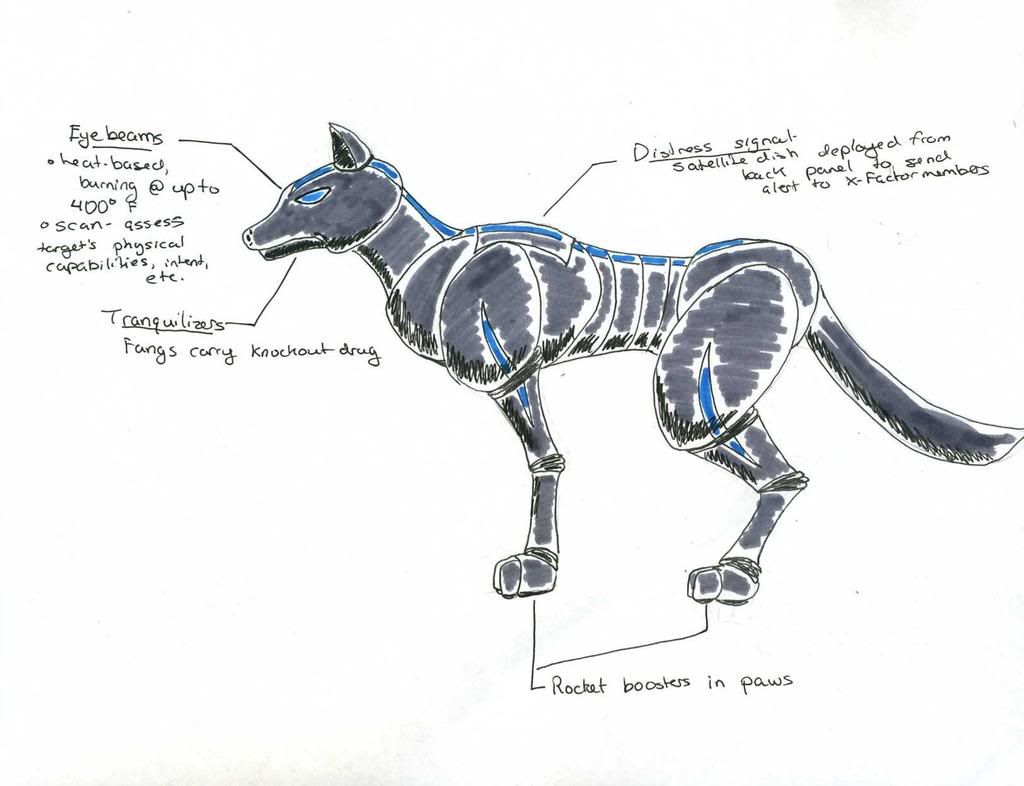 Eye beams
• heat-based,
burning @ up to
400° F
• scan- assess
target's physical
capabilities, intent,
etc.
Distress signal-
satellite dish deployed from
back panel to send
alert to X-Factor members
Tranquilizers
Fangs carry knockout drug
Rocket boosters in paws